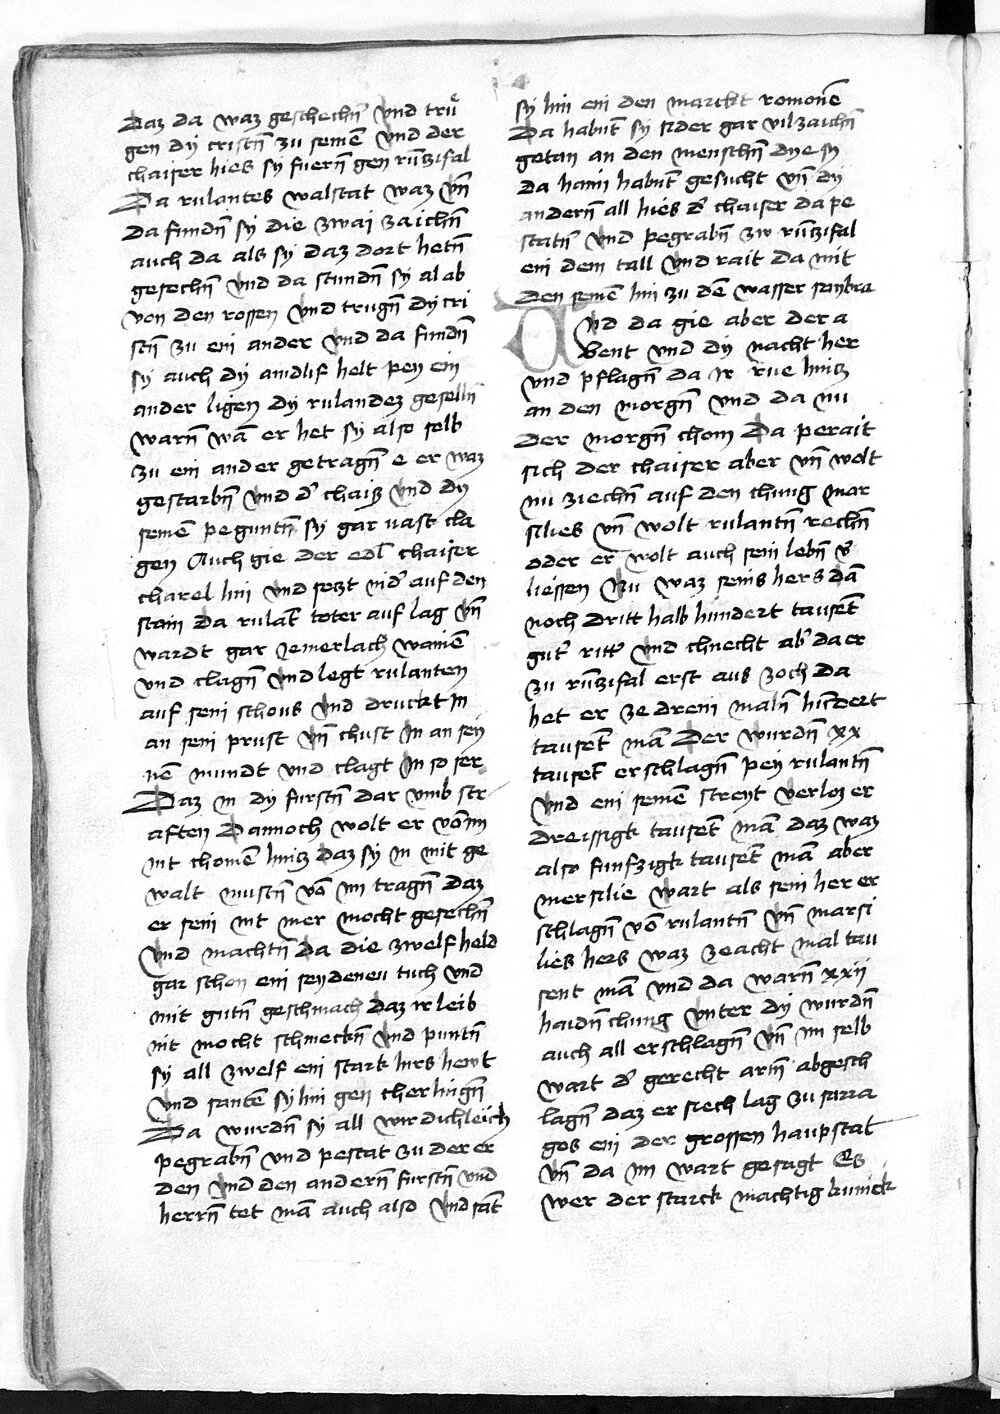 Daz da waz geschechn̄ vnd trů
gen dy cristn̄ zu semē vnd der
chaiser hies sy fuern̄ gen rūtzifal
Da rulantes walstat waz vn̄
da fundn̄ sy die zwai zaichn̄
auch da als sy daz dort hetn̄
gesechn̄ vnd da stundn̄ sy al ab
von den rossen vnd trugn̄ dy cri
stn̄ zu ein ander vnd da fundn̄
sy auch dy aindlif helt pey ein
ander ligen dy rulandez geselln̄
warn̄ wā er het sy also selb
zu ein ander getragn̄ e er waz
gestarbn̄ vnd d' chaiß vnd dy
semē peguntn̄ sy gar vast cla
gen Auch gie der edl chaiser
charel hin vnd setzt nid' auf den
stain da rulāt toter auf lag vn̄
wardt gar Jemerlach wainē
vnd clagn̄ vnd legt rulanten
auf sein schous vnd druckt In
an sein prust vn̄ chust In an sey
nē mundt vnd clagt In so ser
Daz in dy furstn̄ dar vmb str
aften Dannoch wolt er vō im
nit chomē hintz daz sy in mit ge
walt mustn̄ vō im tragn̄ daz
er sein nit mer mocht gesechn̄
vnd machtn̄ da die zwelf held
gar schon ein seydeneu tuch vnd
mit gutn̄ geschmach daz ir leib
nit mocht schmeckn̄ vnd puntn̄
sy all zwelf ein stark hirs hewt
vnd santē sy hin gen cherlingn̄
Da wurdn̄ sy all wirdichleich
pegrabn̄ vnd pestat zu der er
den vnd den andern̄ furstn̄ vnd
herrn̄ tet mā auch also vnd sāt
sy hin ein den marckt romonē
Da habnt̄ sy sider gar vil zaichn̄
getan an den menschn̄ dye sy
da haim habnt̄ gesucht vn̄ dy
andern̄ all hies d' chaiser da pe
statn̄ vnd pegrabn̄ zw rūtzifal
ein dem tall vnd rait da mit
den semē hin zu dē wasser seybra
Vnd da gie aber der a
bent vnd dy nacht her
vnd pflagn̄ da ir rue hintz
an den morgn̄ vnd da nu
der morgn̄ chom Da perait
sich der chaiser aber vn̄ wolt
nu ziechn̄ auf den chung mar
silies vn̄ wolt rulantn̄ rechn̄
oder er wolt auch sein lebn̄ v'
liessen Nu waz seins hers dā
noch dritt halb hundert tausēt
gut' ritt' vnd chnecht ab' da er
zu rūtzifal erst aus zoch da
het er ze drein maln̄ hūdert
tausēt mā Der wurdn̄ xx
tausēt erschlagn̄ pey rulantn̄
vnd ein semē streyt verloz er
dreissigk tausēt mā daz waz
also funfzigk tausēt mā aber
mersilie wart als sein her er
schlagn̄ vō rulantn̄ vn̄ marsi
lies hers waz zeacht mal tau
sent mā vnd da warn̄ xxii
haidn̄ chung vnter dy wurdn̄
auch all erschlagn̄ vn̄ im selb
wart d' gerecht arm̄ abgesch
lagn̄ daz er siech lag zu sarra
gos ein der grossen haupstat
vn̄ da im wart gesagt Es
wer der starck machtig kunick